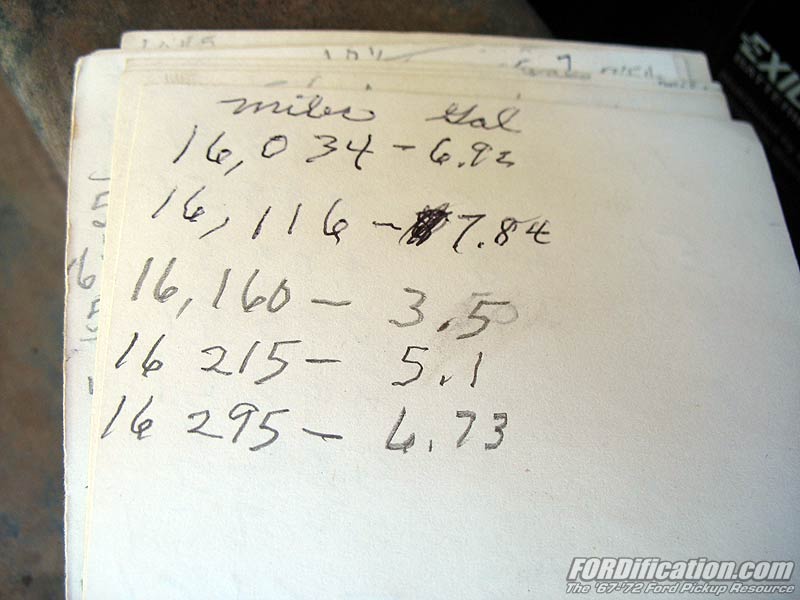 miles Gal
16,034 - 6.92
16,116 - 7.84
16,160 - 3.5
16 215 - 5.1
16 295 - 6.73
EXID
BATTER
FORDification.com
The '67-'72 Ford Pickup Resource